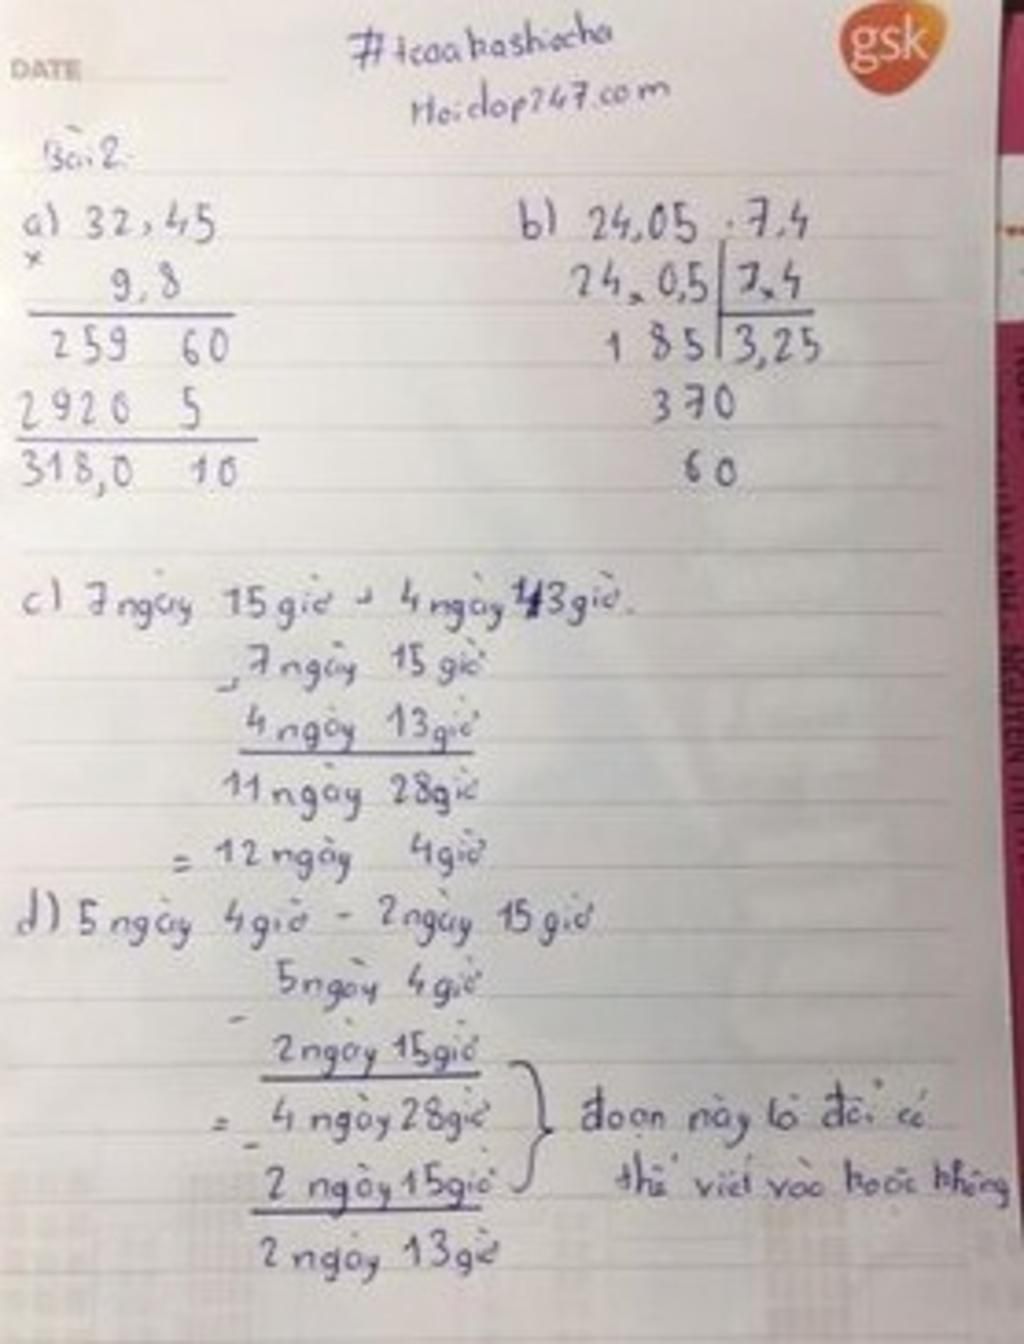 DATE
#tcaakashocha
Hoidap247.com
gsk
Bài 2.
a) 32,45
×
9,8
259 60
2920 5
318,0 10
b) 24,05 : 7,4
24,0,5 7,4
1 85 3,25
370
60
c) 7 ngày 15 giờ + 4 ngày 13 giờ.
7 ngày 15 giờ
+
4 ngày 13 giờ
11 ngày 28 giờ
= 12 ngày 4 giờ
d) 5 ngày 4 giờ - 2 ngày 15 giờ
5 ngày 4 giờ
-
2 ngày 15 giờ
= 4 ngày 28 giờ
-
2 ngày 15 giờ
2 ngày 13 giờ
đoạn này là đổi có
thể viết vào hoặc không